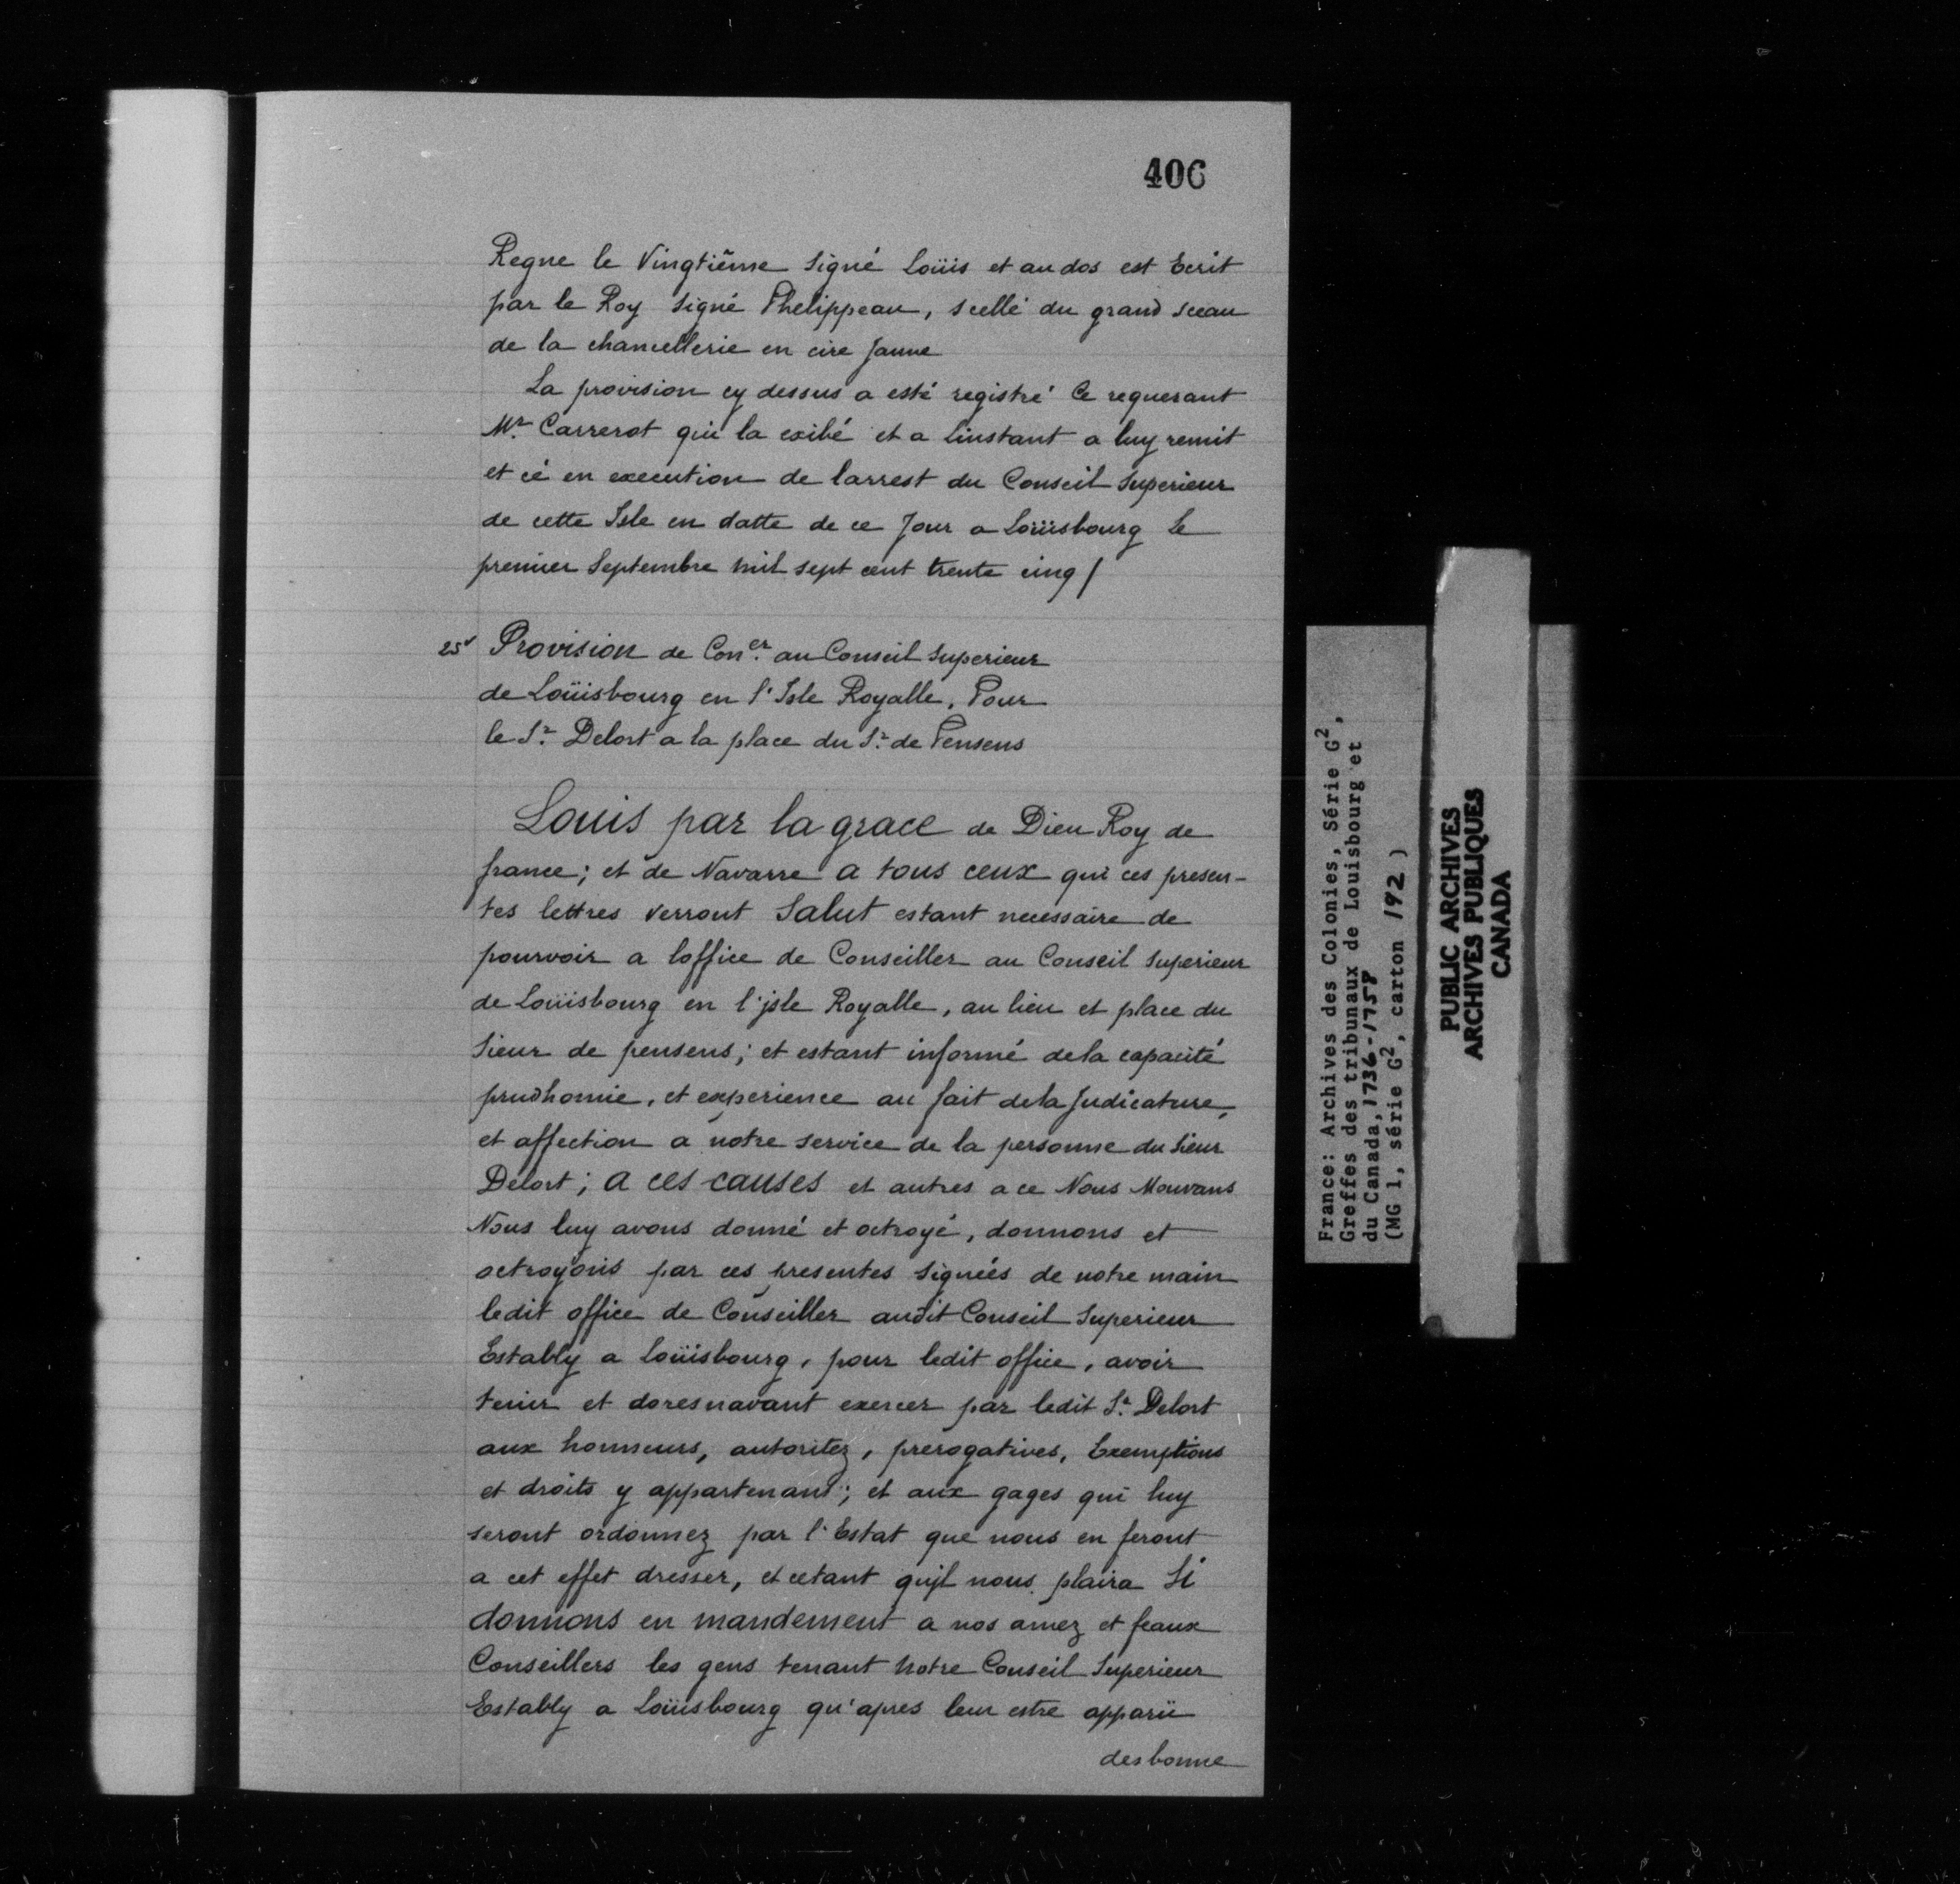 406
Regne le Vingtiême signé Loüis et au dos est Ecrit
par le Roy signé Phelippeau, scellé du grand sceau
de la chancellerie en cire Jaune
La provision cy dessus a esté registré Ce requerant
Mr. Carrerot qui la exibé et a linstant a luy remit
et cé en execution de larrest du Conseil Superieur
de cette Isle en datte de ce Jour a Loüisbourg le
premier Septembre mil sept cent trente cinq /
25v Provision de Coner. au Conseil Superieur
de Loüisbourg en l'Isle Royalle, Pour
le Sr. Delort a la place du Sr. de Pensens
Louis par la grace de Dieu Roy de
france; et de Navarre a tous ceux qui ces presen-
tes lettres verront Salut estant necessaire de
pourvoir a loffice de Conseiller au Conseil Superieur
de Loüisbourg en l'jsle Royalle, au lieu et place du
Sieur de pensens; et estant informé dela capacité
prudhomie, et experience au fait dela Judicature,
et affection a notre service de la personne du Sieur
Delort; a ces causes et autres a ce Nous Mouvans
Nous luy avons donné et octroyé, donnons et
octroyons par ces presentes signeés de notre main
ledit office de Conseiller audit Conseil Superieur
Estably a Loüisbourg, pour ledit office, avoir
tenir et doresnavant exercer par ledit Sr. Delort
aux honneurs, autoritez, prerogatives, Exemptions
et droits y appartenant; et aux gages qui luy
seront ordonnez par l'Estat que nous en feront
a cet effet dresser, et cetant qujl nous plaira Si
donnons en mandement a nos amez et feaux
Conseillers les gens tenant notre Conseil Superieur
Estably a Loüisbourg qu'apres leur estre apparü
des bonne
France: Archives des Colonies, Série G2,
Greffes des tribunaux de Louisbourg et
du Canada, 1736-1758
(MG 1, série G2, carton 192)
PUBLIC ARCHIVES
ARCHIVES PUBLIQUES
CANADA